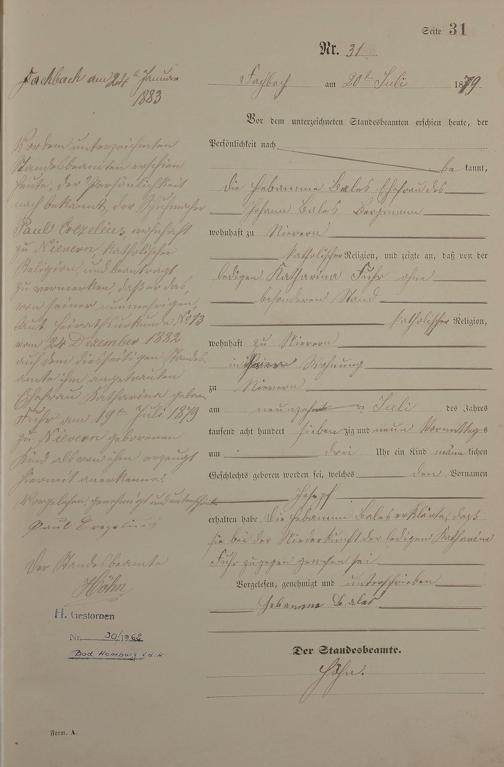 Seite 31
Nr. 31
Fachbach am 20ten Juli 1879
Vor dem unterzeichneten Standesbeamten erschien heute, der
Persönlichkeit nach
be kannt,
die Hebamme Bales Ehefrau des
Johann Bales Bergmann
wohnhaft zu Nievern
katholischer Religion, und zeigte an, daß von der
ledigen Katharina Fuhr ohne
besonderen Stand
katholischer Religion,
wohnhaft zu Nievern
in ihrer Wohnung
zu Nievern
am neunzehnten Juli des Jahres
tausend acht hundert sieben zig und neun Vormittags
um drei Uhr ein Kind männlichen
Geschlechts geboren worden sei, welches den Vornamen
Joseph
erhalten habe Die Hebamme Bales erklärte, daß
sie bei der Niederkunft der ledigen Katharina
Fuhr zugegen gewesen sei
Vorgelesen, genehmigt und unterschrieben
Hebamme Bales
Der Standesbeamte.
Höhn.
Fachbach am 24ten Januar
1883
Vor dem unterzeichneten
Standesbeamten erschien
heute, der Persönlichkeit
nach bekannt, der Schuhmacher
Paul wohnhaft
zu Nievern katholischer
Religion und beantragt
zu vermerken, daß er das,
von seiner nunmehrigen,
laut Heirathsurkunde No 13
vom 24 Dezember 1882
auf dem diesseitigen Standes
amte ihm angetrauten
Ehefrau Katharina geborene
Fuhr am 19ten Juli 1879
zu Nievern geborenen
Kind als von ihm erzeugt
hiermit anerkenne.
Vorgelesen, genehmigt und unterschrieben
Paul
Der Standesbeamte
Höhn
H. Gestorben
Nr. 30/1962
Bad Homburg v.d.H
Form. A.